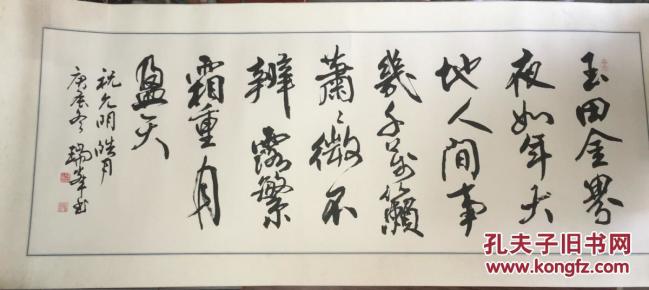 玉田金界
夜如年大
地人間事
幾千萬籟
蕭〻微不
辨露繁
霜重月
盈天
祝允明皓月
庚辰冬 瑞峰书
孔夫子旧书网
www.kongfz.com